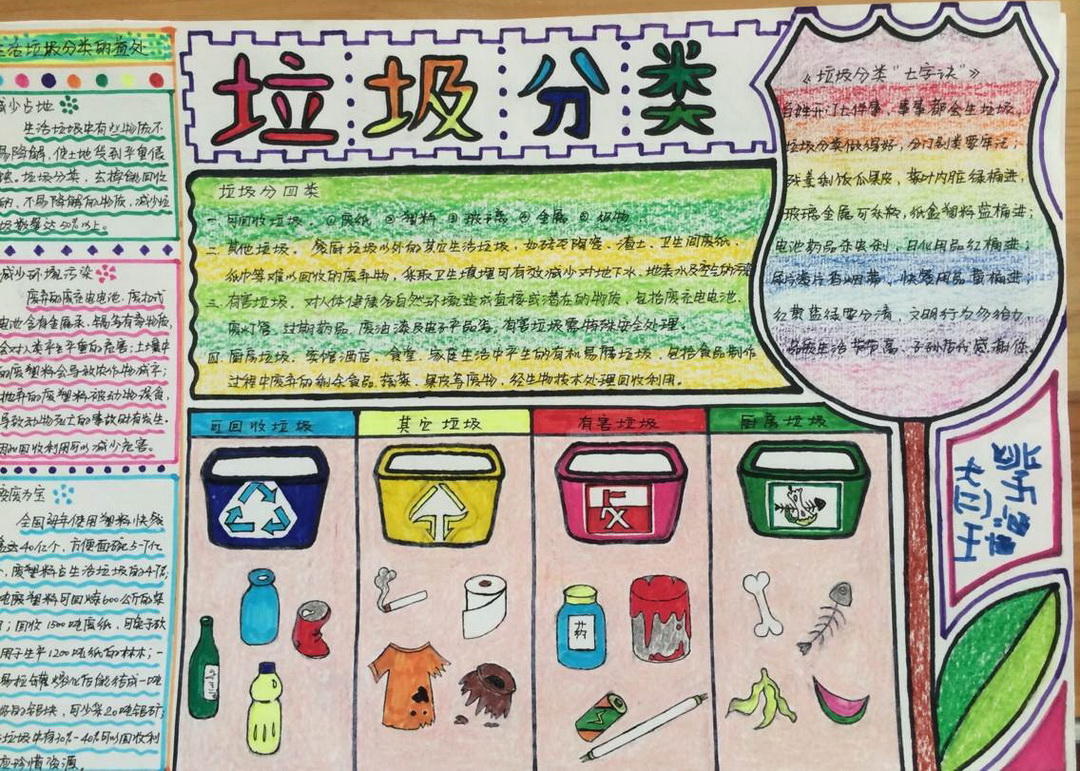 生活垃圾分类的益处
减少占地
生活垃圾中有些物质不
易降解,使土地受到严重侵
蚀。垃圾分类,去掉能回收
的,不易降解的物质,减少垃
圾数量达50%以上。
减少环境污染
废弃的废充电电池、废扣式
电池含有金属汞、镉等有毒物质,
会对人类产生严重的危害;土壤中
的废塑料会导致农作物减产;
抛弃的废塑料被动物误食,
导致动物死亡的事故时有发生。
因此回收利用可以减少危害。
变废为宝
全国每年使用塑料快餐
盒达40亿个,方便面碗5-7亿
废塑料占生活垃圾的4-7%
吨废塑料可回炼600公斤的柴
回收1500吨废纸,可免于砍
用于生产1200吨纸的林木;一
易拉罐熔化后能结成一吨
铝块,可少采20吨铝矿;
垃圾中有30%-40%可以回收利
应珍惜资源。
垃圾分类
垃圾分四类
一、可回收垃圾 ①废纸 ②塑料 ③玻璃 ④金属 ⑤织物
二、其他垃圾、餐厨垃圾以外的其它生活垃圾,如砖瓦陶瓷、渣土、卫生间废纸、
纸巾等难以回收的废弃物,采取卫生填埋可有效减少对地下水、地表水及空气的污染
三、有害垃圾、对人体健康与自然环境造成直接或潜在的物质,包括废充电电池、
废灯管、过期药品、废油漆及电子产品等,有害垃圾需特殊安全处理。
四、厨房垃圾、宾馆酒店、食堂、家庭生活中产生的有机易腐垃圾,包括食品制作
过程中废弃的剩余食品、蔬菜、果皮等废物,经生物技术处理回收利用。
《垃圾分类“七字诀”》
百姓开门七件事,事事都会生垃圾,
垃圾分类做得好,分门别类要牢记;
残羹剩饭瓜果皮,菜叶内脏绿桶进,
玻璃金属可乐瓶,纸盒塑料蓝桶进;
电池药品杀虫剂,日化用品红桶进;
尿片渣片和烟蒂,快餐用品黄桶进;
红黄蓝绿要分清,文明行为多给力,
低碳生活节节高,子孙后代感谢您。
可回收垃圾
其它垃圾
有害垃圾
厨房垃圾
药